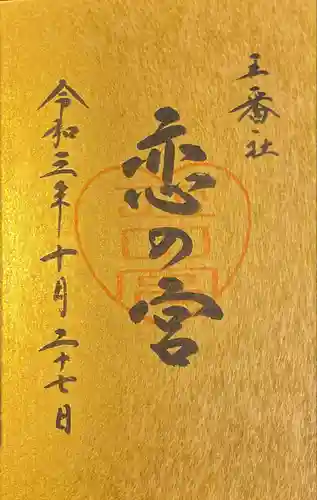 三番社
恋の宮
令和三年十月二十七日